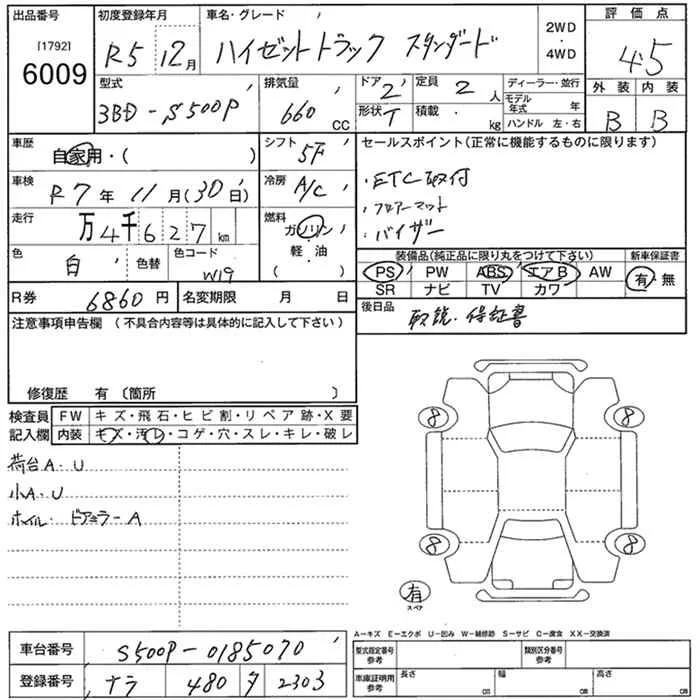 出品番号 [1792] 6009
初度登録年月 R5 12月
車名・グレード ハイゼットトラック スタンダード
2WD・4WD
評価点 4.5
型式 3BD-S500P
排気量 660 CC
ドア 2
形状 T
定員 2 人
積載 kg
ディーラー・並行
モデル年式 年
ハンドル 左・右
外装 内装
B B
車歴 自家用・( )
シフト 5F
車検 R7年11月(30日)
冷房 A/C
走行 万4千627km
燃料 ガソリン 軽・油 ( )
色 白 色替 色コード W19
R券 6860円 名変期限 月 日
セールスポイント(正常に機能するものに限ります)
・ETC取付
・フロアーマット
・バイザー
装備品(純正品に限り丸をつけて下さい) 新車保証書
PS PW ABS エアB AW 有・無
SR ナビ TV カワ
後日品 取説・保証書
注意事項申告欄 (不具合内容等は具体的に記入して下さい)
修復歴 有 〔箇所 〕
検査員 FW キズ・飛石・ヒビ割・リペア跡・X要
記入欄 内装 キズ・汚レ・コゲ・穴・スレ・キレ・破レ
荷台A・U
小A・U
ホイル・ドアミラーA
8 8
8 8
有
スペア
A―キズ E―エクボ U―凹み W―補修跡 S―サビ C―腐食 XX―交換済
車台番号 S500P-0185070
登録番号 ナラ 480 タ 2303
型式指定番号 参考 類別区分番号 参考
車庫証明用 参考 長さ cm 幅 cm 高さ cm